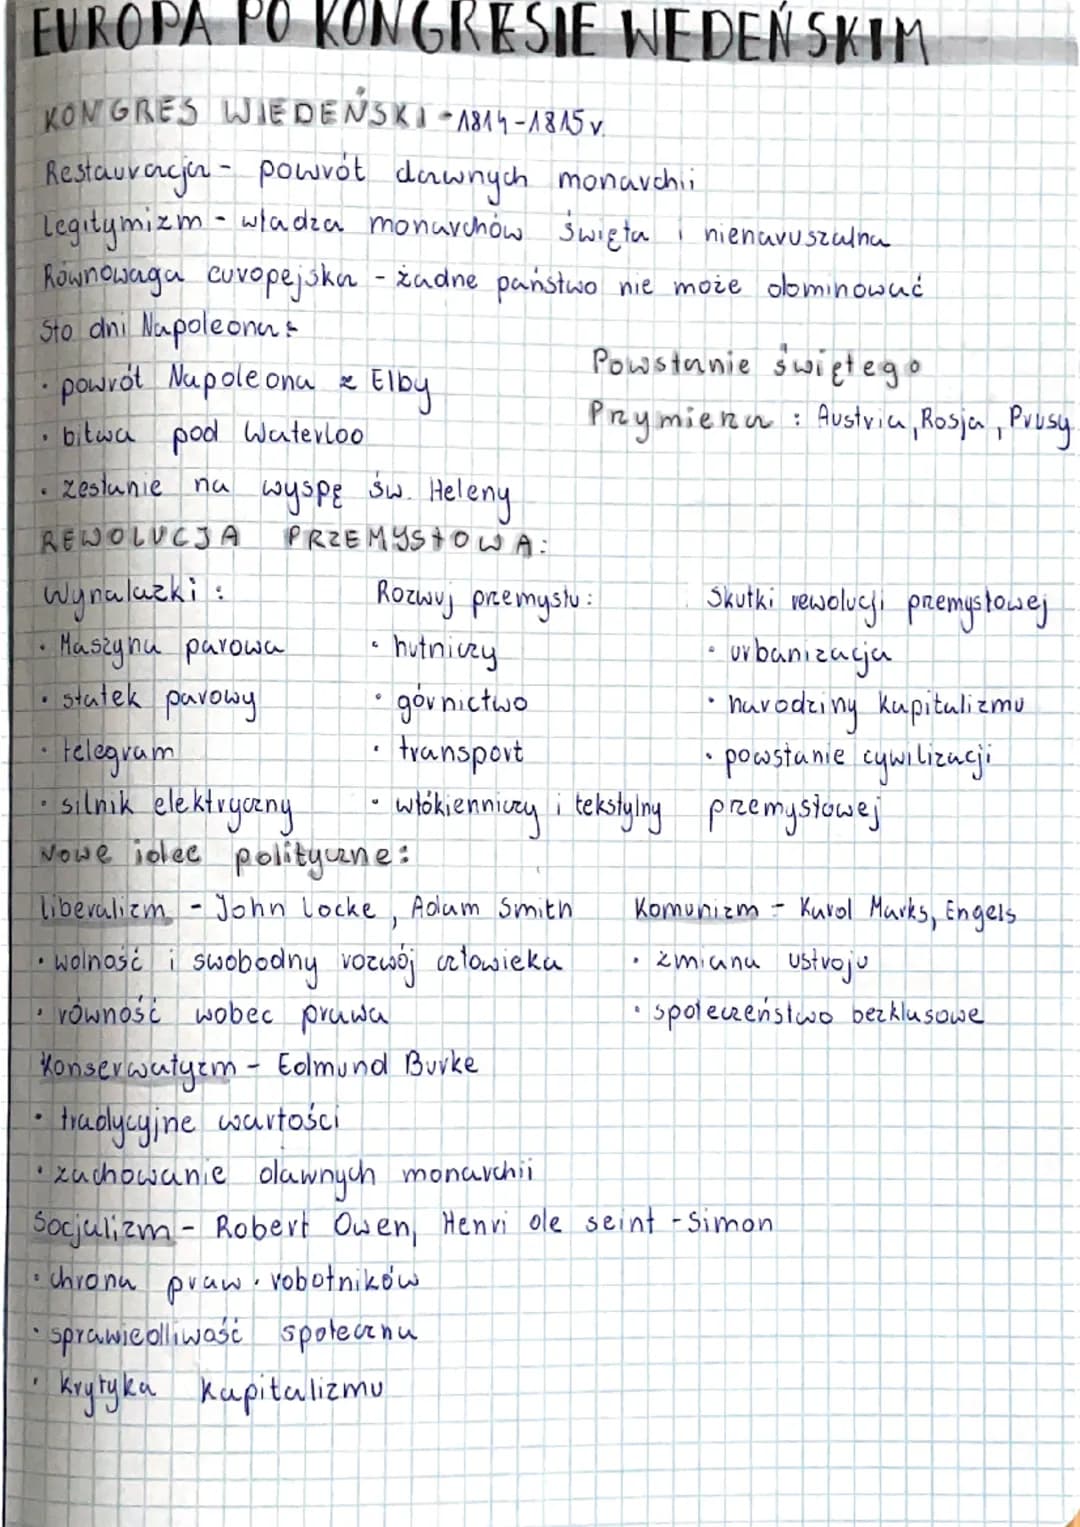 EUROPA PO KONGRESIE WEDEŃSKIM
KONGRES WIEDEŃSKI - 1814-1815 r.
Restauracja - powrót dawnych monarchii
Legitymizm - władza monarchów święta i nienaruszalna
Równowaga europejska - żadne państwo nie może dominować
Sto dni Napoleona:
• powrót Napoleona z Elby
• bitwa pod Waterloo
• zesłanie na wyspę św. Heleny
Powstanie świętego
Przymierza : Austria, Rosja, Prusy
REWOLUCJA PRZEMYSŁOWA:
Wynalazki :
• Maszyna parowa
• statek parowy
• telegram
• silnik elektryczny
Rozwuj przemysłu:
• hutniczy
• górnictwo
• transport
• włókienniczy i tekstylny
Skutki rewolucji przemysłowej
• urbanizacja
• narodziny kapitalizmu
• powstanie cywilizacji
przemysłowej
Nowe idee polityczne:
liberalizm - John Locke, Adam Smith
• wolność i swobodny rozwój człowieka
• równość wobec prawa
Komunizm - Karol Marks, Engels
• zmiana ustroju
• społeczeństwo bezklasowe
Konserwatyzm - Edmund Burke
• tradycyjne wartości
• zachowanie dawnych monarchii
Socjalizm - Robert Owen, Henri de seint-Simon
• chrona praw robotników
• sprawiedliwość społeczna
• krytyka kapitalizmu